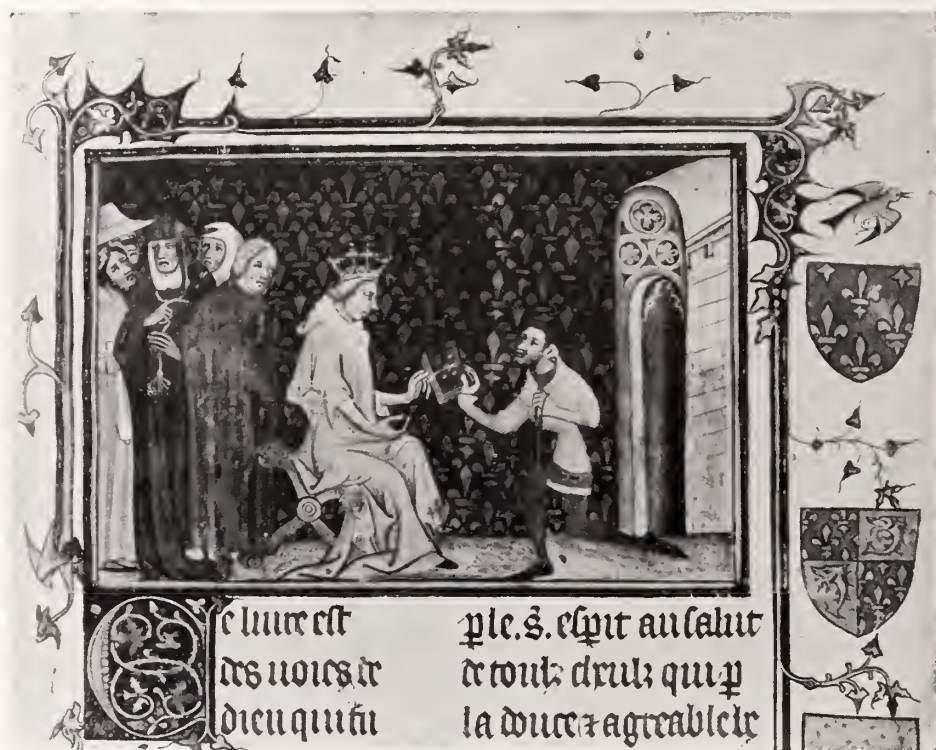 Ce liure est
des uoies de
dieu qui fu
ple. s. esp̃it au salut
de toulz ceulz qui p̱
la douce ⁊ agreable le